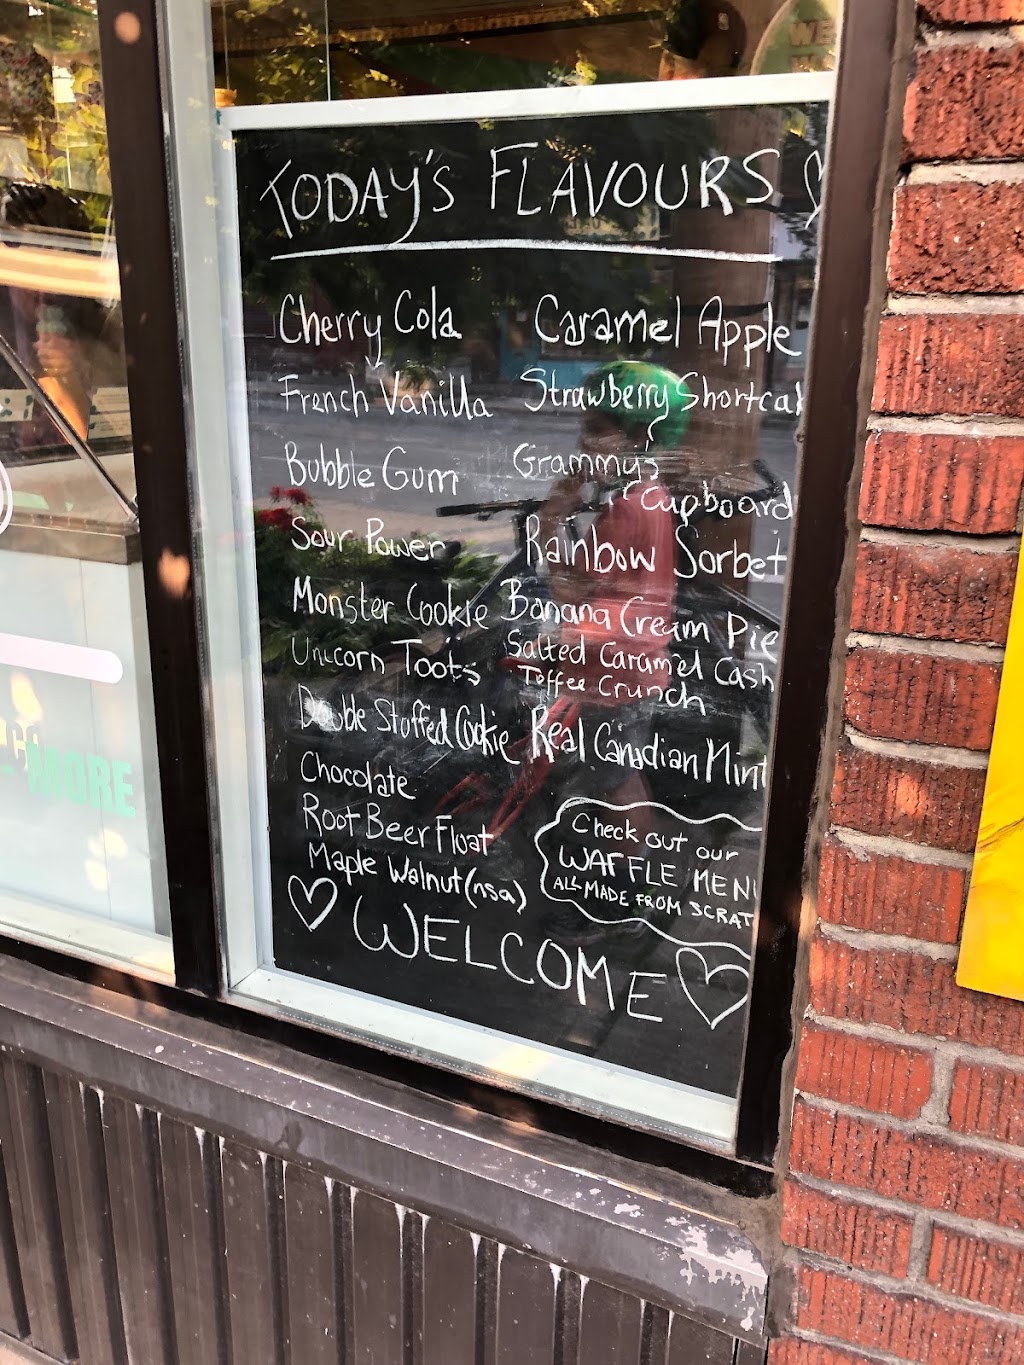 TODAY'S FLAVOURS
Cherry Cola
French Vanilla
Bubble Gum
Sour Power
Monster Cookie
Unicorn Toots
Double Stuffed Cookie
Chocolate
Root Beer Float
Maple Walnut (nsa)
Caramel Apple
Strawberry Shortca
Grammy's
Cupboard
Rainbow Sorbet
Banana Cream Pie
Salted Caramel Cash
Toffee Crunch
Real Canadian Mint
Check out our
WAFFLE MEN
ALL MADE FROM SCRAT
WELCOME
MORE
WE